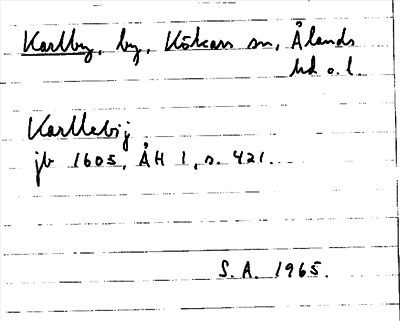 Karlby, by, Kökars sn, Ålands
hd o. l.
Karllebij
jb 1605, ÅH 1, s. 421.
S. A. 1965.